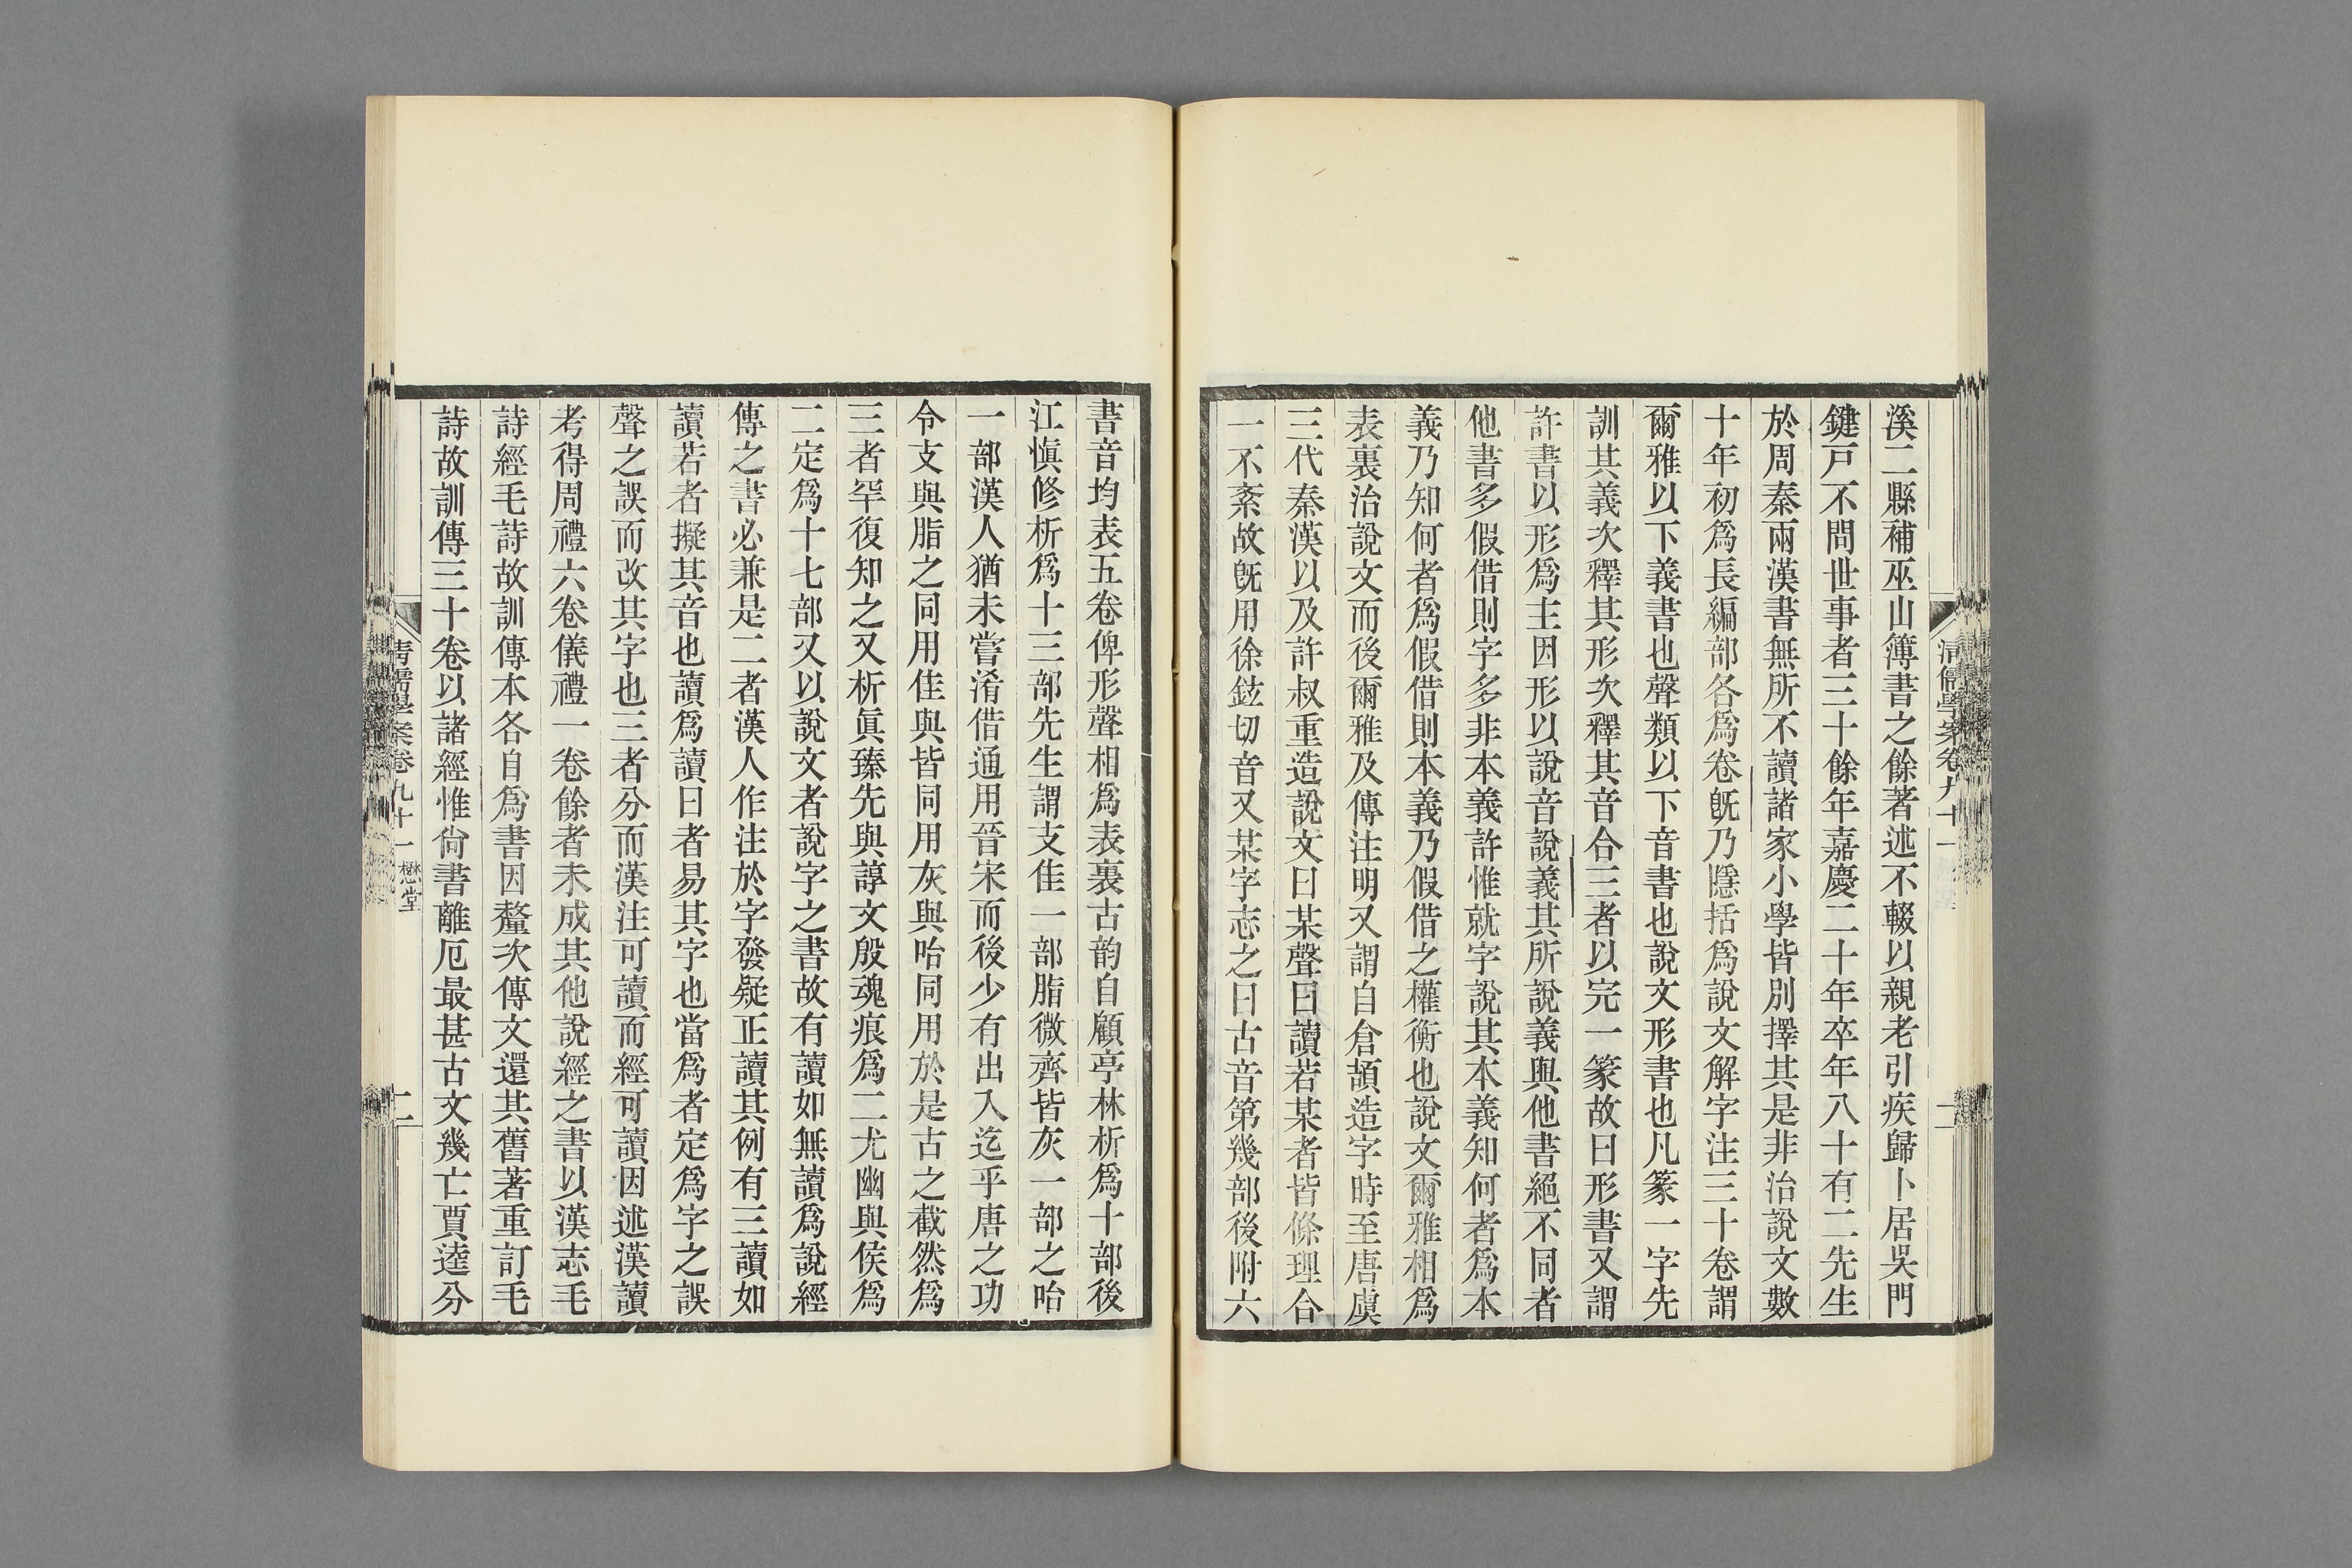 清儒學案卷九十一
二
溪二縣補巫山簿書之餘著述不輟以親老引疾歸卜居吳門
鍵戸不問世事者三十餘年嘉慶二十年卒年八十有二先生
於周秦兩漢書無所不讀諸家小學皆別擇其是非治說文數
十年初爲長編部各爲卷旣乃隱括爲說文解字注三十卷謂
爾雅以下義書也聲類以下音書也說文形書也凡篆一字先
訓其義次釋其形次釋其音合三者以完一篆故曰形書又謂
許書以形爲主因形以說音說義其所說義與他書絕不同者
他書多假借則字多非本義許惟就字說其本義知何者爲本
義乃知何者爲假借則本義乃假借之權衡也說文爾雅相爲
表裏治說文而後爾雅及傳注明又謂自倉頡造字時至唐虞
三代秦漢以及許叔重造說文曰某聲曰讀若某者皆條理合
一不紊故旣用徐鉉切音又某字志之曰古音第幾部後附六
書音均表五卷俾形聲相爲表裏古韵自顧亭林析爲十部後
江愼修析爲十三部先生謂支佳一部脂微齊皆灰一部之咍
一部漢人猶未嘗淆借通用晉宋而後少有出入迄乎唐之功
令支與脂之同用佳與皆同用灰與咍同用於是古之截然爲
三者罕復知之又析眞臻先與諄文殷魂痕爲二尤幽與侯爲
二定爲十七部又以說文者說字之書故有讀如無讀爲說經
傳之書必兼是二者漢人作注於字發疑正讀其例有三讀如
讀若者擬其音也讀爲讀曰者易其字也當爲者定爲字之誤
聲之誤而改其字也三者分而漢注可讀而經可讀因述漢讀
考得周禮六卷儀禮一卷餘者未成其他說經之書以漢志毛
詩經毛詩故訓傳本各自爲書因釐次傳文還其舊著重訂毛
詩故訓傳三十卷以諸經惟尙書離厄最甚古文幾亡賈逵分
清儒學案卷九十一 懋堂
二